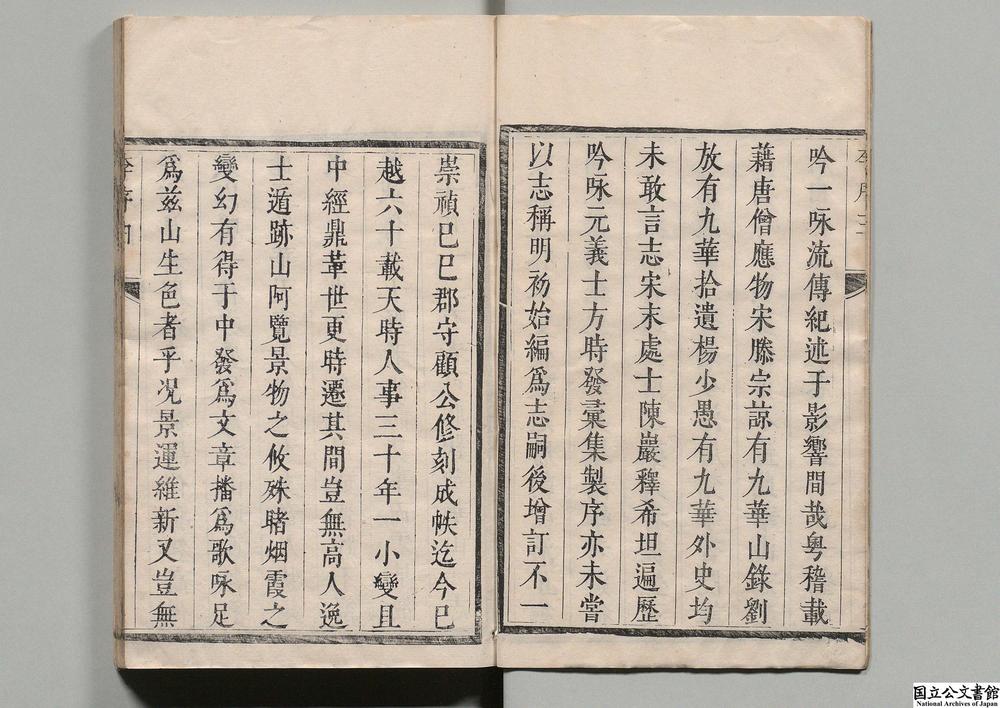 吟一咏流傳紀述于影響間哉粤稽載
藉唐僧應物宋滕宗諒有九華山錄劉
放有九華拾遺楊少愚有九華外史均
未敢言志宋末處士陳巖釋希坦遍歷
吟咏元義士方時發彙集製序亦未嘗
以志稱明初始編爲志嗣後增訂不一
崇禎巳巳郡守顧公修刻成帙迄今巳
越六十載天時人事三十年一小變且
中經鼎革世更時遷其間豈無高人逸
士遁跡山阿覽景物之攸殊睹烟霞之
變幻有得于中發爲文章播爲歌咏足
爲兹山生色者乎况景運維新又豈無
国立公文書館
National Archives of Japan